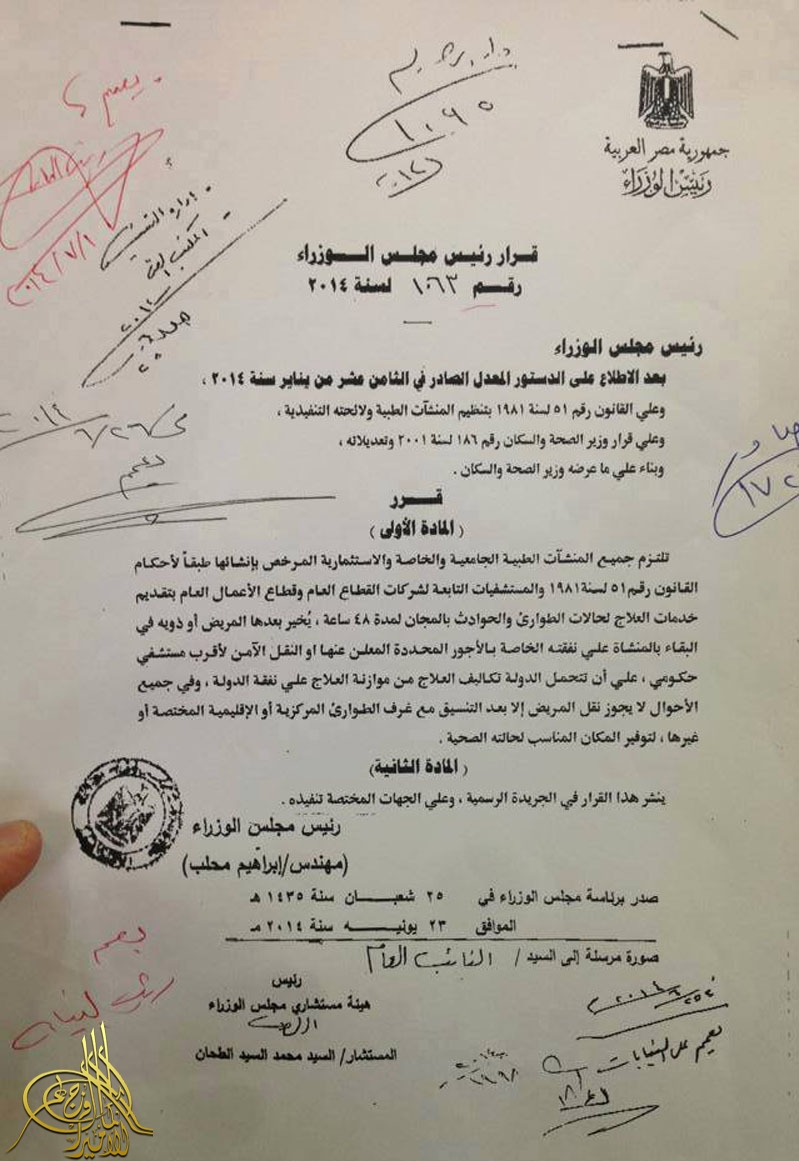 جمهورية مصر العربية
رئيس الوزراء
١٠٩٥
يعمم
٢٠١٤/٧/١
قرار رئيس مجلس الوزراء
رقم ١٠٦٣ لسنة ٢٠١٤
رئيس مجلس الوزراء
بعد الاطلاع على الدستور المعدل الصادر في الثامن عشر من يناير سنة ٢٠١٤ ،
وعلي القانون رقم ٥١ لسنة ١٩٨١ بتنظيم المنشآت الطبية ولائحته التنفيذية ،
وعلي قرار وزير الصحة والسكان رقم ١٨٦ لسنة ٢٠٠١ وتعديلاته ،
وبناء علي ما عرضه وزير الصحة والسكان .
قـــرر
( المادة الأولى )
تلتزم جميع المنشآت الطبية الجامعية والخاصة والاستثمارية المرخص بإنشائها طبقاً لأحكام
القانون رقم ٥١ لسنة ١٩٨١ والمستشفيات التابعة لشركات القطاع العام وقطاع الأعمال العام بتقديم
خدمات العلاج لحالات الطوارئ والحوادث بالمجان لمدة ٤٨ ساعة ، يُخير بعدها المريض أو ذويه في
البقاء بالمنشاة علي نفقته الخاصة بالأجور المحددة المعلن عنها او النقل الآمن لأقرب مستشفي
حكومي ، علي أن تتحمل الدولة تكاليف العلاج من موازنة العلاج علي نفقة الدولة ، وفي جميع
الأحوال لا يجوز نقل المريض إلا بعد التنسيق مع غرف الطوارئ المركزية أو الإقليمية المختصة أو
غيرها ، لتوفير المكان المناسب لحالته الصحية .
( المادة الثانية)
ينشر هذا القرار في الجريدة الرسمية ، وعلي الجهات المختصة تنفيذه .
رئيس مجلس الوزراء
(مهندس/إبراهيم محلب)
صدر برئاسة مجلس الوزراء في ٢٥ شعبـــان سنة ١٤٣٥ هـ
الموافق ٢٣ يونيـــه سنة ٢٠١٤ مـ
صورة مرسلة إلى السيد / النائب العام
رئيس
هيئة مستشاري مجلس الوزراء
المستشار/ السيد محمد السيد الطحان
يعمم
يعمم على النيابات